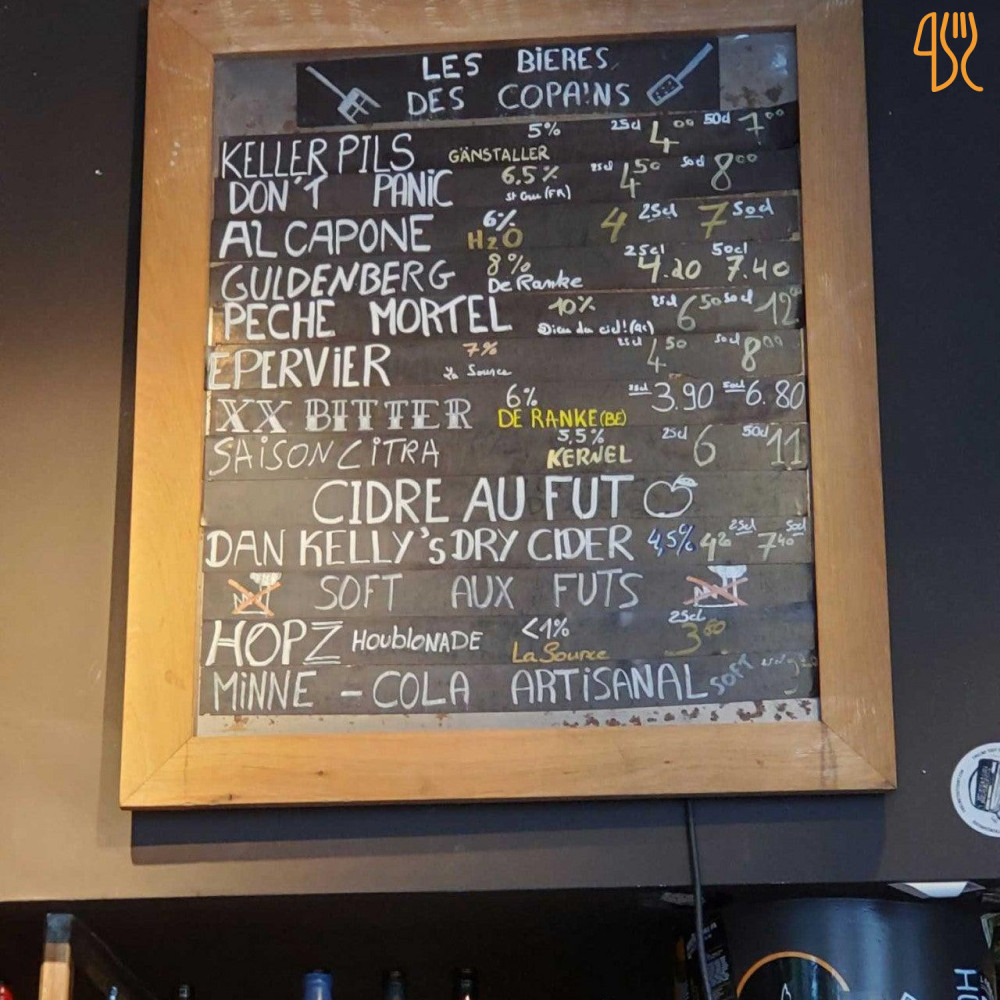 LES BIERES
DES COPAINS
KELLER PILS GÄNSTALLER 5% 25cl 4⁰⁰ 50cl 7⁰⁰
DON'T PANIC 6.5% St Gru (FR) 25cl 4⁵⁰ 50cl 8⁰⁰
AL CAPONE 6% H2O 4 25cl 7 50cl
GULDENBERG 8% De Ranke 25cl 4.20 50cl 7.40
PECHE MORTEL 10% Dieu du ciel! (QC) 25cl 6⁵⁰ 50cl 12⁰⁰
EPERVIER 7% La Source 25cl 4⁵⁰ 50cl 8⁰⁰
XX BITTER 6% DE RANKE (BE) 25cl 3.90 50cl 6.80
SAISON CITRA 5,5% KERNEL 25cl 6 50cl 11
CIDRE AU FUT
DAN KELLY's DRY CIDER 4,5% 4²⁰ 25cl 7⁴⁰ 50cl
SOFT AUX FUTS
HOPZ HOUBLONADE <1% La Source 25cl 3⁶⁰
MINNE - COLA ARTISANAL SOFT